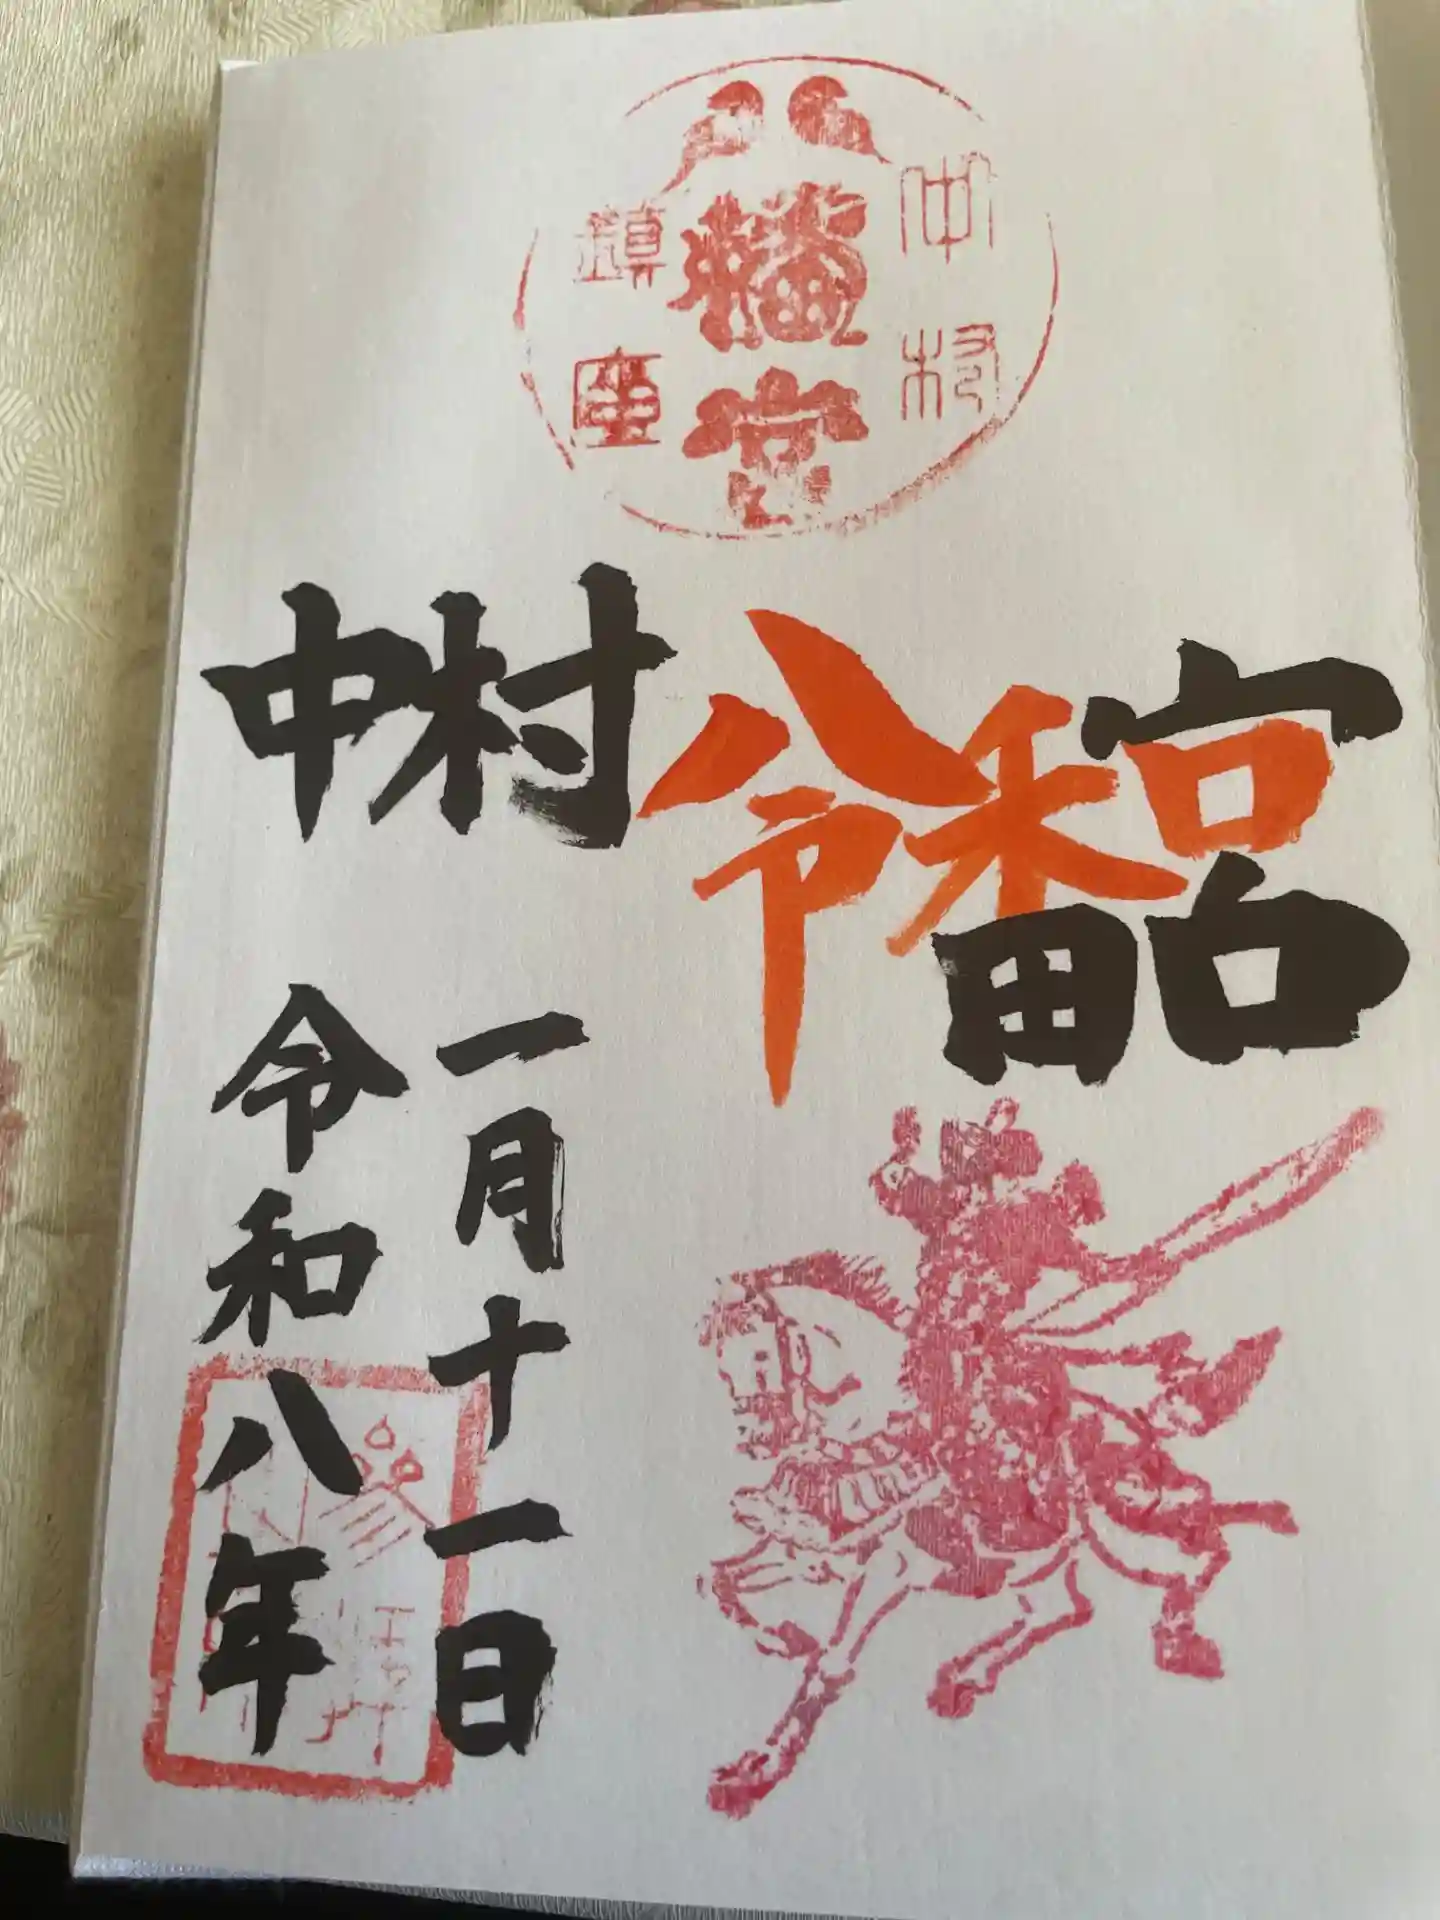 中村
八幡宮
鎮座
中村令番宮
令和八年
一月十一日